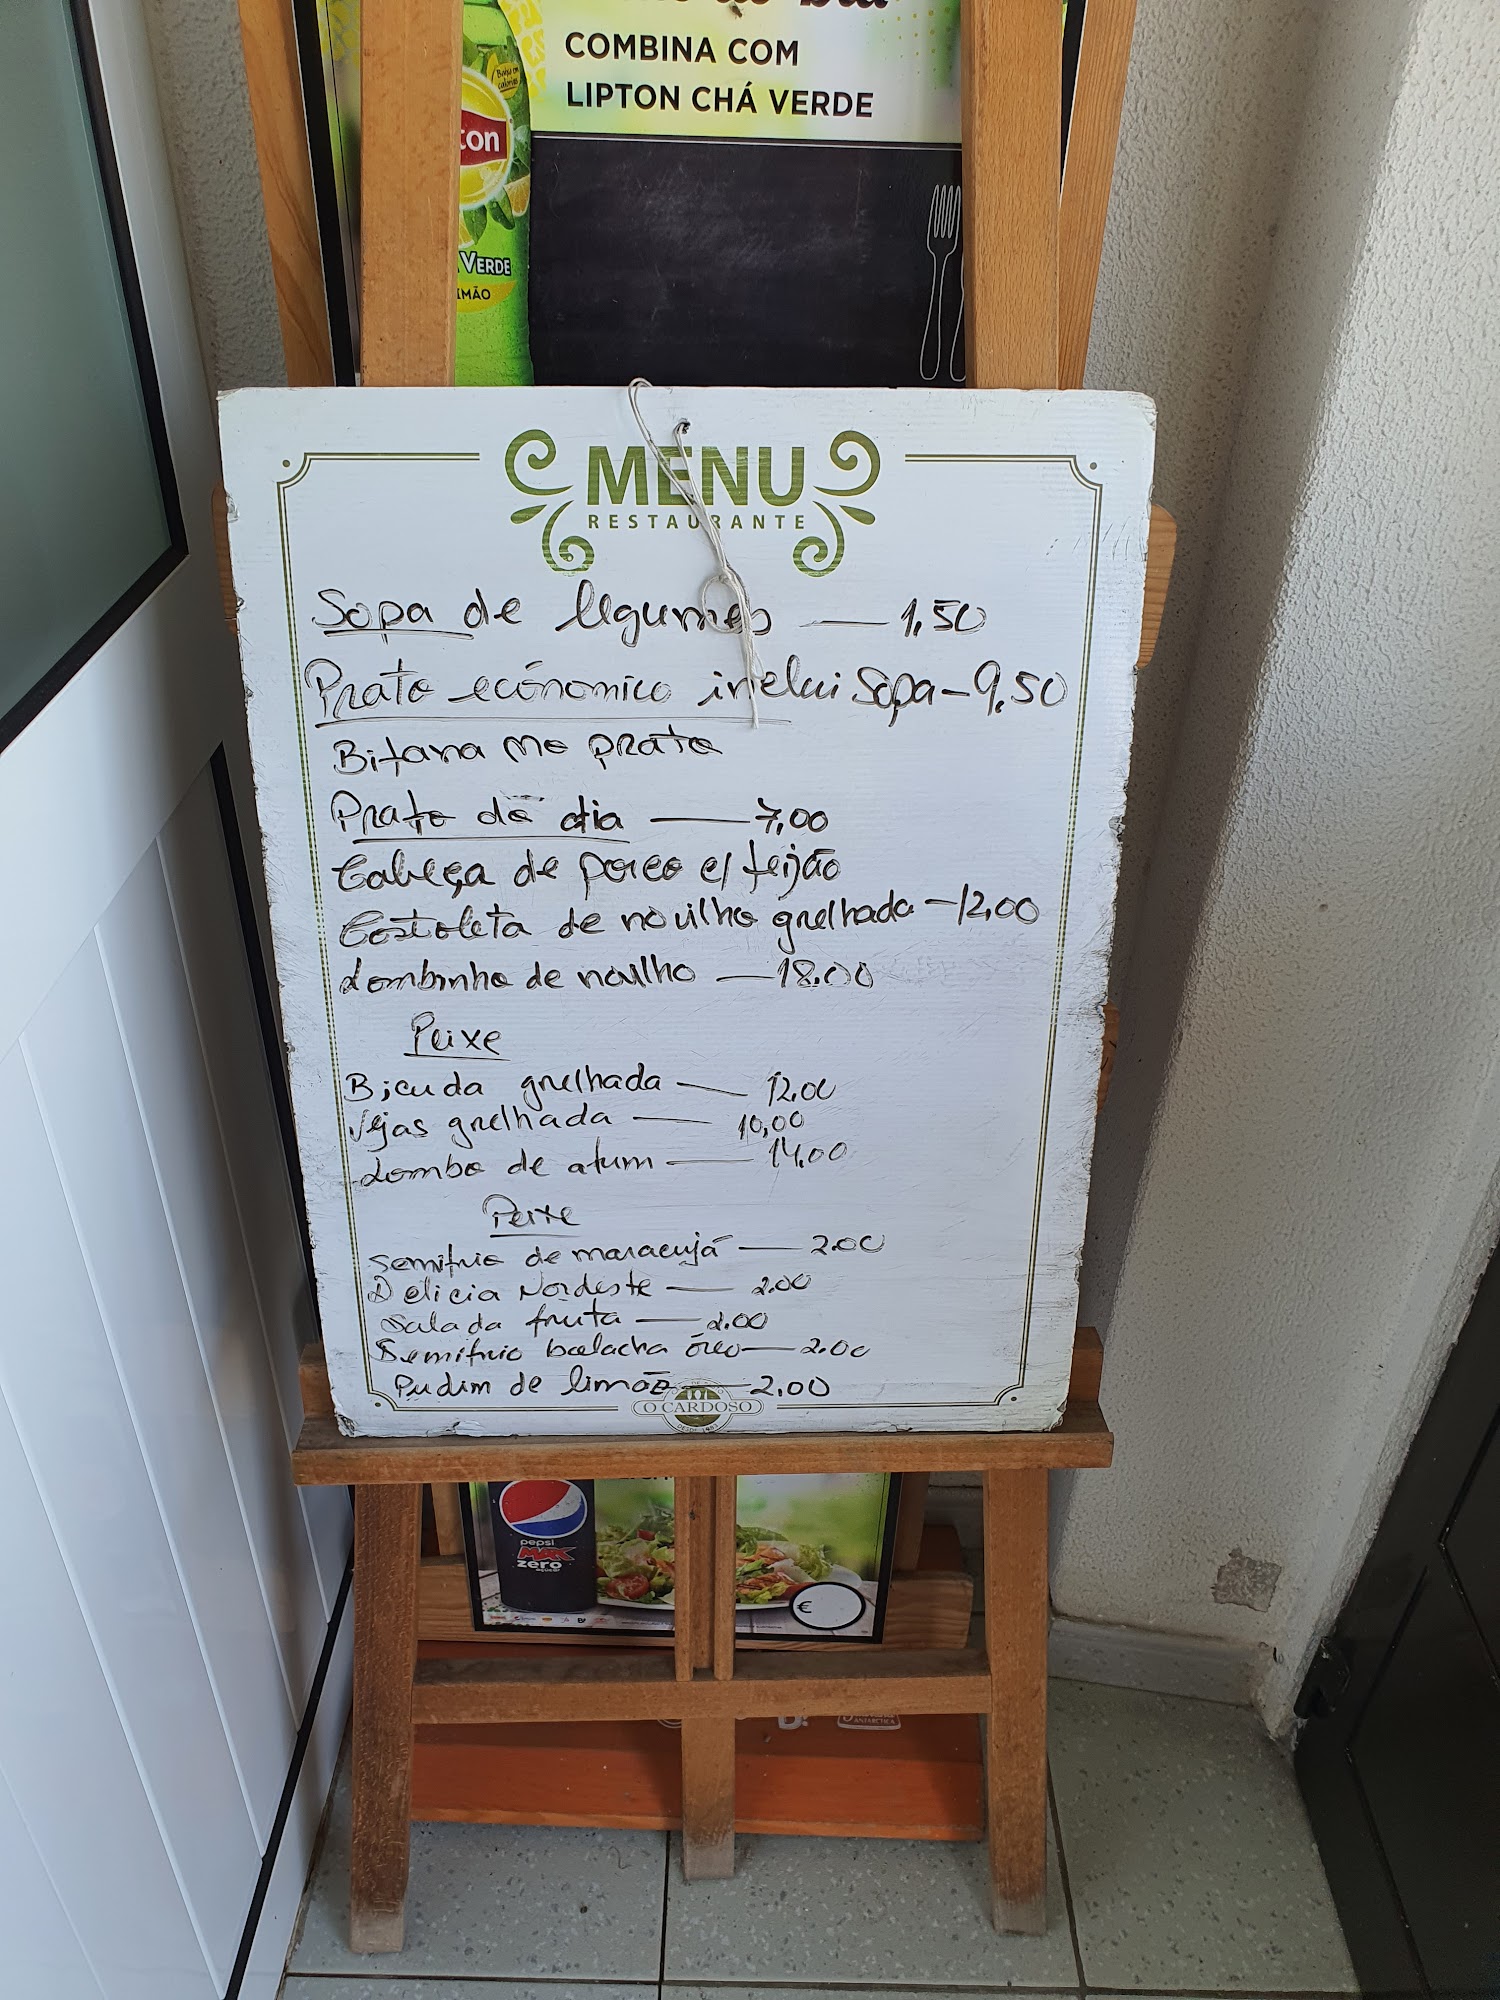 COMBINA COM
LIPTON CHÁ VERDE
ton
VERDE
MENU
RESTAURANTE
Sopa de legumes — 1,50
Prato ecónomico inclui Sopa - 9,50
Bifana no prato
Prato do dia — 7,00
Cabeça de porco c/ feijão
Costoleta de novilho grelhada - 12,00
Lombinho de novilho — 18.00
Peixe
Bicuda grelhada — 12.00
Vejas grelhada — 10,00
Lombo de atum — 14.00
Peixe
Semifrio de maracujá — 2.00
Delicia Nordeste — 2.00
Salada fruta — 2.00
Semifrio bolacha óreo — 2.00
Pudim de limão — 2.00
O CARDOSO
pepsi
MAX
zero
açúcar
€